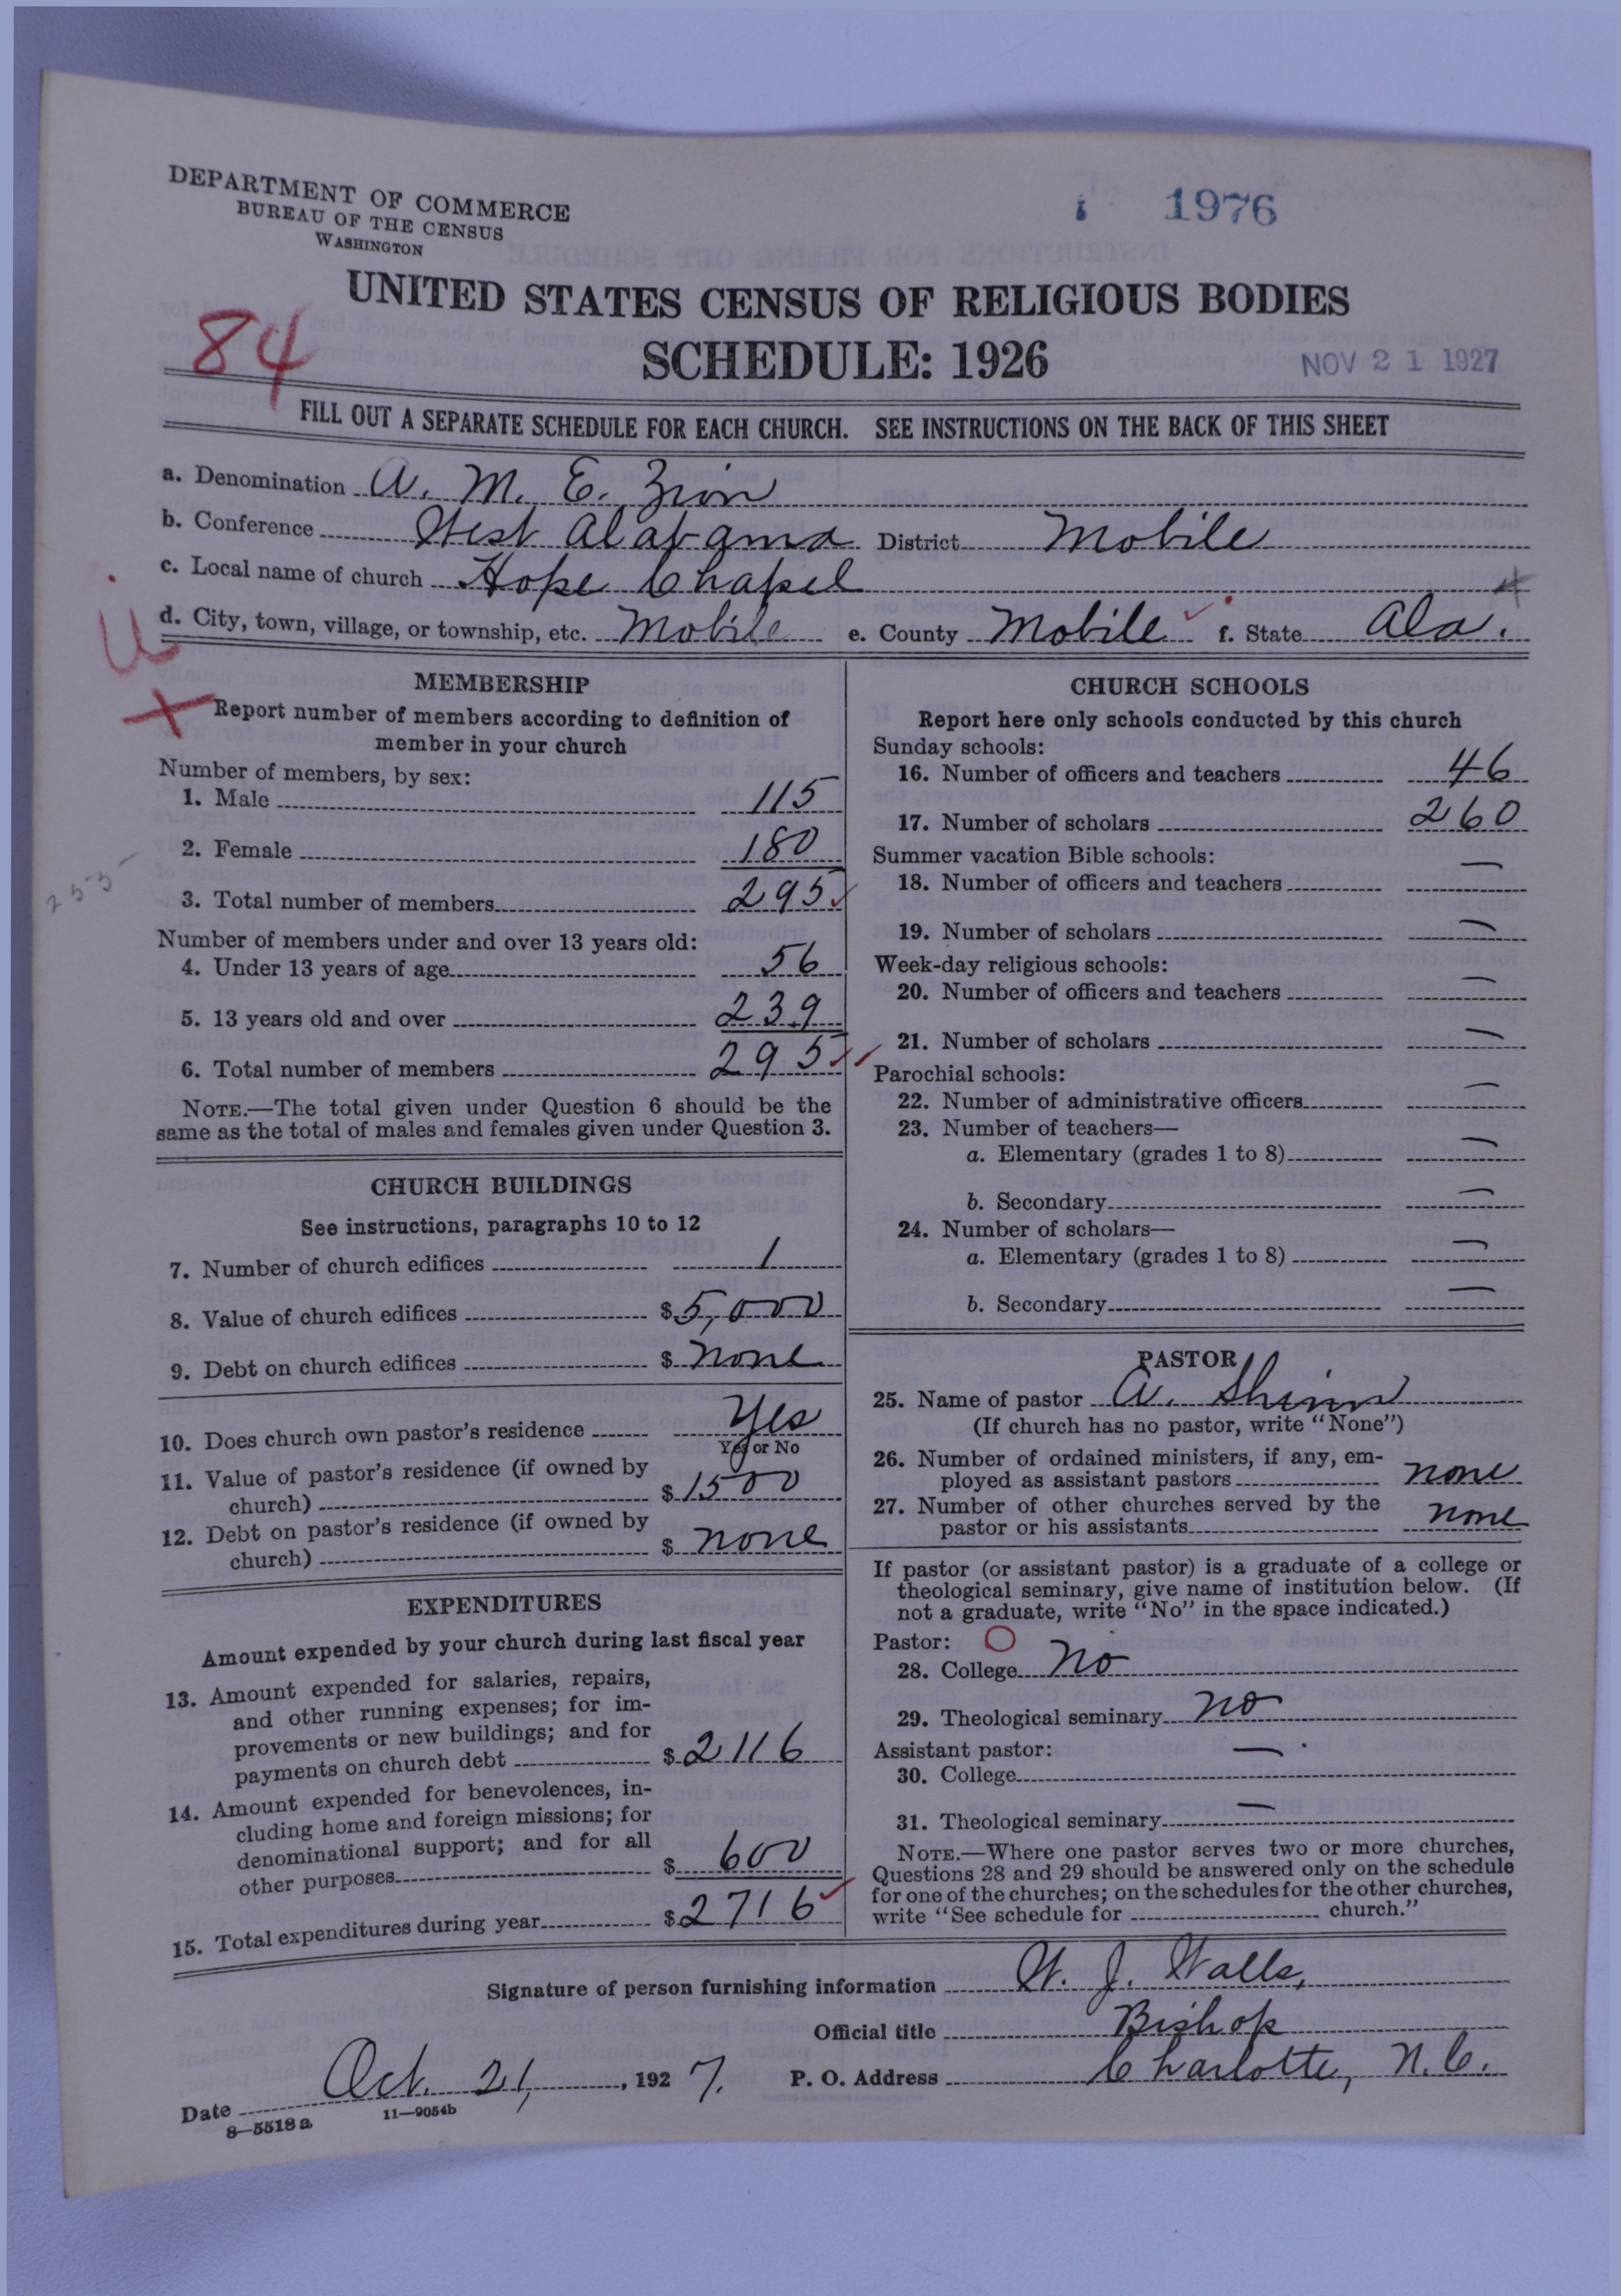 DEPARTMENT OF COMMERCE
BUREAU OF THE CENSUS
WASHINGTON
1976
UNITED STATES CENSUS OF RELIGIOUS BODIES
84
SCHEDULE: 1926
NOV 21 1927
FILL OUT A SEPARATE SCHEDULE FOR EACH CHURCH. SEE INSTRUCTIONS ON THE BACK OF THIS SHEET
a. Denomination A. M. E. Zion
b. Conference West Alabama District Mobile
c. Local name of church Hope Chapel
d. City, town, village, or township, etc. Mobile e. County Mobile f. State Ala.
MEMBERSHIP
Report number of members according to definition of
member in your church
Number of members, by sex:
1. Male 115
2. Female 180
255
3. Total number of members 295
Number of members under and over 13 years old:
4. Under 13 years of age 56
5. 13 years old and over 239
6. Total number of members 295
NOTE.—The total given under Question 6 should be the
same as the total of males and females given under Question 3.
CHURCH BUILDINGS
See instructions, paragraphs 10 to 12
7. Number of church edifices 1
8. Value of church edifices $5,000
9. Debt on church edifices $ none
10. Does church own pastor's residence Yes
Yes or No
11. Value of pastor's residence (if owned by
church) $1500
12. Debt on pastor's residence (if owned by
church) $ none
EXPENDITURES
Amount expended by your church during last fiscal year
13. Amount expended for salaries, repairs,
and other running expenses; for im-
provements or new buildings; and for
payments on church debt $2116
14. Amount expended for benevolences, in-
cluding home and foreign missions; for
denominational support; and for all
other purposes $ 600
15. Total expenditures during year $2716
CHURCH SCHOOLS
Report here only schools conducted by this church
Sunday schools:
16. Number of officers and teachers 46
17. Number of scholars 260
Summer vacation Bible schools:
18. Number of officers and teachers —
19. Number of scholars —
Week-day religious schools:
20. Number of officers and teachers —
21. Number of scholars —
Parochial schools:
22. Number of administrative officers —
23. Number of teachers—
a. Elementary (grades 1 to 8) —
b. Secondary —
24. Number of scholars—
a. Elementary (grades 1 to 8) —
b. Secondary —
PASTOR
25. Name of pastor A. Shinn
(If church has no pastor, write "None")
26. Number of ordained ministers, if any, em-
ployed as assistant pastors none
27. Number of other churches served by the
pastor or his assistants none
If pastor (or assistant pastor) is a graduate of a college or
theological seminary, give name of institution below. (If
not a graduate, write "No" in the space indicated.)
Pastor:
28. College No
29. Theological seminary No
Assistant pastor:
30. College —
31. Theological seminary —
NOTE.—Where one pastor serves two or more churches,
Questions 28 and 29 should be answered only on the schedule
for one of the churches; on the schedules for the other churches,
write "See schedule for church."
Signature of person furnishing information W. J. Walls,
Official title Bishop
Date Oct. 21, 1927. P. O. Address Charlotte, N.C.
8—5518 a 11—9054b